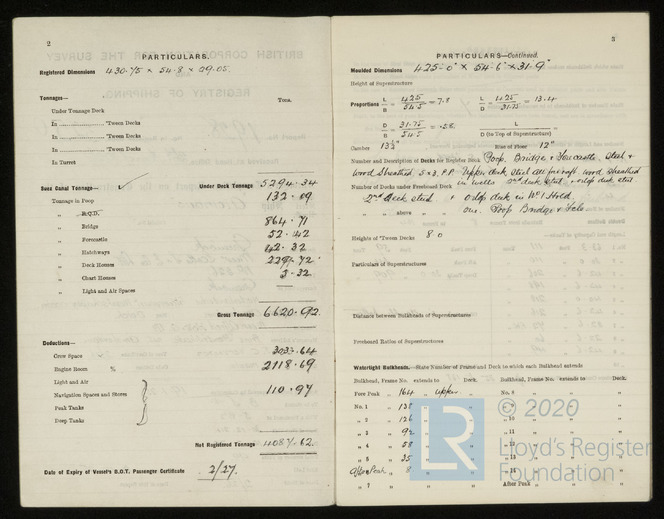 2
PARTICULARS.
Registered Dimensions 430.45 × 54.8 × 29.05.
Tonnages— Tons.
Under Tonnage Deck
In 'Tween Decks
In 'Tween Decks
In 'Tween Decks
In Turret
Suez Canal Tonnage— ✓ Under Deck Tonnage 5294.34
Tonnage in Poop 132.09
„ R.Q.D.
„ Bridge 864.71
„ Forecastle 52.42
„ Hatchways 42.32
„ Deck Houses
„ Chart Houses 3.32
„ Light and Air Spaces —
Gross Tonnage 6620.92
Deductions—
Crew Space
Engine Room % 2118.69
Light and Air
Navigation Spaces and Stores 110.97
Peak Tanks
Deep Tanks
Net Registered Tonnage 4087.62
Date of Expiry of Vessel's B.O.T. Passenger Certificate 2/27.
3
PARTICULARS—Continued.
Moulded Dimensions 425'-0" × 54'-6" × 31'-9"
Height of Superstructure
Proportions L/B = 425/54.5 = 7.8 L/D = 425/31.75 = 13.4
D/B = 31.75/54.5 = .58 L/D (to Top of Superstructure) =
Camber 13½" Rise of Floor 12"
Number and Description of Decks for Register Book Poop, Bridge & Forecastle, Steel &
wood sheathed, Upper deck steel wood sheathed
in wells 2nd deck steel & orlop deck steel
Number of Decks under Freeboard Deck 2nd deck steel & orlop deck in No 1 Hold.
„ „ above „ one. Poop Bridge & Fcle
Heights of 'Tween Decks 8.0
Particulars of Superstructures
Distance between Bulkheads of Superstructures
Freeboard Ratios of Superstructures
Watertight Bulkheads. State Number of Frame and Deck to which each Bulkhead extends
Bulkhead, Frame No. extends to Deck. Bulkhead, Frame No. extends to Deck.
Fore Peak „ 164 „ Upper „ No. 8 „ „ „
No. 1 „ 138 „ „
„ 2 „ 126 „ „ „ 10 „ „
„ 3 „ 92 „ „ „ 11 „ „
„ 4 „ 58 „ „ „ 12 „ „
„ 5 „ 35 „ „ „ 13 „ „
After Peak „ 8 „ „ „ 14 „ „
„ 7 „ „ „ After Peak „ „
© 2020
LR
Lloyd's Register
Foundation